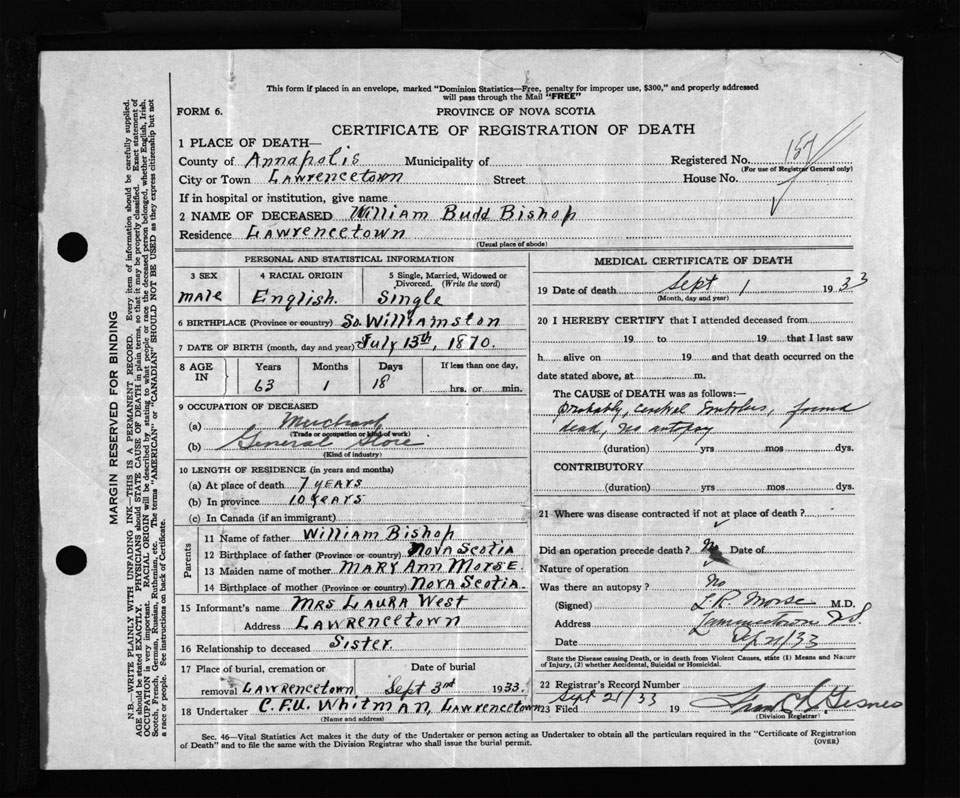 This form if placed in an envelope, marked "Dominion Statistics—Free, penalty for improper use, $300," and properly addressed
will pass through the Mail "FREE"
FORM 6.
PROVINCE OF NOVA SCOTIA
CERTIFICATE OF REGISTRATION OF DEATH
1 PLACE OF DEATH—
County of Annapolis Municipality of Registered No. 157
(For use of Registrar General only)
City or Town Lawrencetown Street House No.
If in hospital or institution, give name
2 NAME OF DECEASED William Budd Bishop
Residence Lawrencetown
(Usual place of abode)
PERSONAL AND STATISTICAL INFORMATION
3 SEX 4 RACIAL ORIGIN 5 Single, Married, Widowed or Divorced. (Write the word)
male English. Single
6 BIRTHPLACE (Province or country) So. Williamston
7 DATE OF BIRTH (month, day and year) July 13th, 1870.
8 AGE IN Years Months Days If less than one day,
63 1 18 hrs. or min.
9 OCCUPATION OF DECEASED
(a) Merchant
(Trade or occupation or kind of work)
(b) General Store
(Kind of industry)
10 LENGTH OF RESIDENCE (in years and months)
(a) At place of death 7 years
(b) In province 10 years
(c) In Canada (if an immigrant)
Parents
11 Name of father William Bishop
12 Birthplace of father (Province or country) Nova Scotia
13 Maiden name of mother Mary Ann Morse.
14 Birthplace of mother (Province or country) Nova Scotia.
15 Informant's name Mrs Laura West
Address Lawrencetown
16 Relationship to deceased Sister.
17 Place of burial, cremation or Date of burial
removal Lawrencetown Sept 3rd 1933.
18 Undertaker C. F. U. Whitman, Lawrencetown
(Name and address)
MEDICAL CERTIFICATE OF DEATH
19 Date of death Sept 1 1933
(Month, day and year)
20 I HEREBY CERTIFY that I attended deceased from
19 to 19 that I last saw
h alive on 19 and that death occurred on the
date stated above, at m.
The CAUSE OF DEATH was as follows:—
Probably, found
dead, no autopsy
(duration) yrs mos dys.
CONTRIBUTORY
(duration) yrs mos dys.
21 Where was disease contracted if not at place of death?
Did an operation precede death? No Date of
Nature of operation
Was there an autopsy? No
(Signed) L. R. Morse M.D.
Address Lawrencetown NS.
Date 33
State the Disease causing Death, or in death from Violent Causes, state (1) Means and Nature
of Injury, (2) whether Accidental, Suicidal or Homicidal.
22 Registrar's Record Number
23 Filed Sept 21/33 19
(Division Registrar)
Sec. 46—Vital Statistics Act makes it the duty of the Undertaker or person acting as Undertaker to obtain all the particulars required in the "Certificate of Registration
of Death" and to file the same with the Division Registrar who shall issue the burial permit.
(OVER)
MARGIN RESERVED FOR BINDING
N.B.—WRITE PLAINLY WITH UNFADING INK—THIS IS A PERMANENT RECORD. Every item of information should be carefully supplied.
AGE should be stated EXACTLY. PHYSICIANS should STATE CAUSE OF DEATH in plain terms, so that it may be properly classified. Exact statement of
OCCUPATION is very important. RACIAL ORIGIN will be described by stating to what people or race the deceased person belonged, whether English, Irish,
Scotch, French, German, Russian, Ruthenian, etc. The terms "AMERICAN" or "CANADIAN" SHOULD NOT BE USED as they express citizenship but not
a race or people. See instructions on back of Certificate.